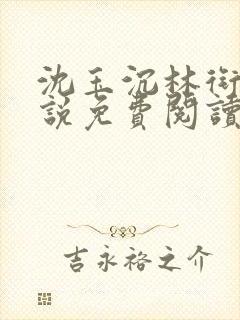 沈玉沉林衔
說免費閱讀
吉永裕之介